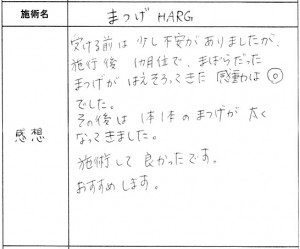 施術名
まつげ HARG
感想
受ける前は少し不安がありましたが、
施行後 1ヵ月位で、まばらだった
まつげがはえそろってきた 感動は ◎
でした。
その後は 1本1本のまつげが太く
なってきました。
施術して良かったです。
おすすめします。